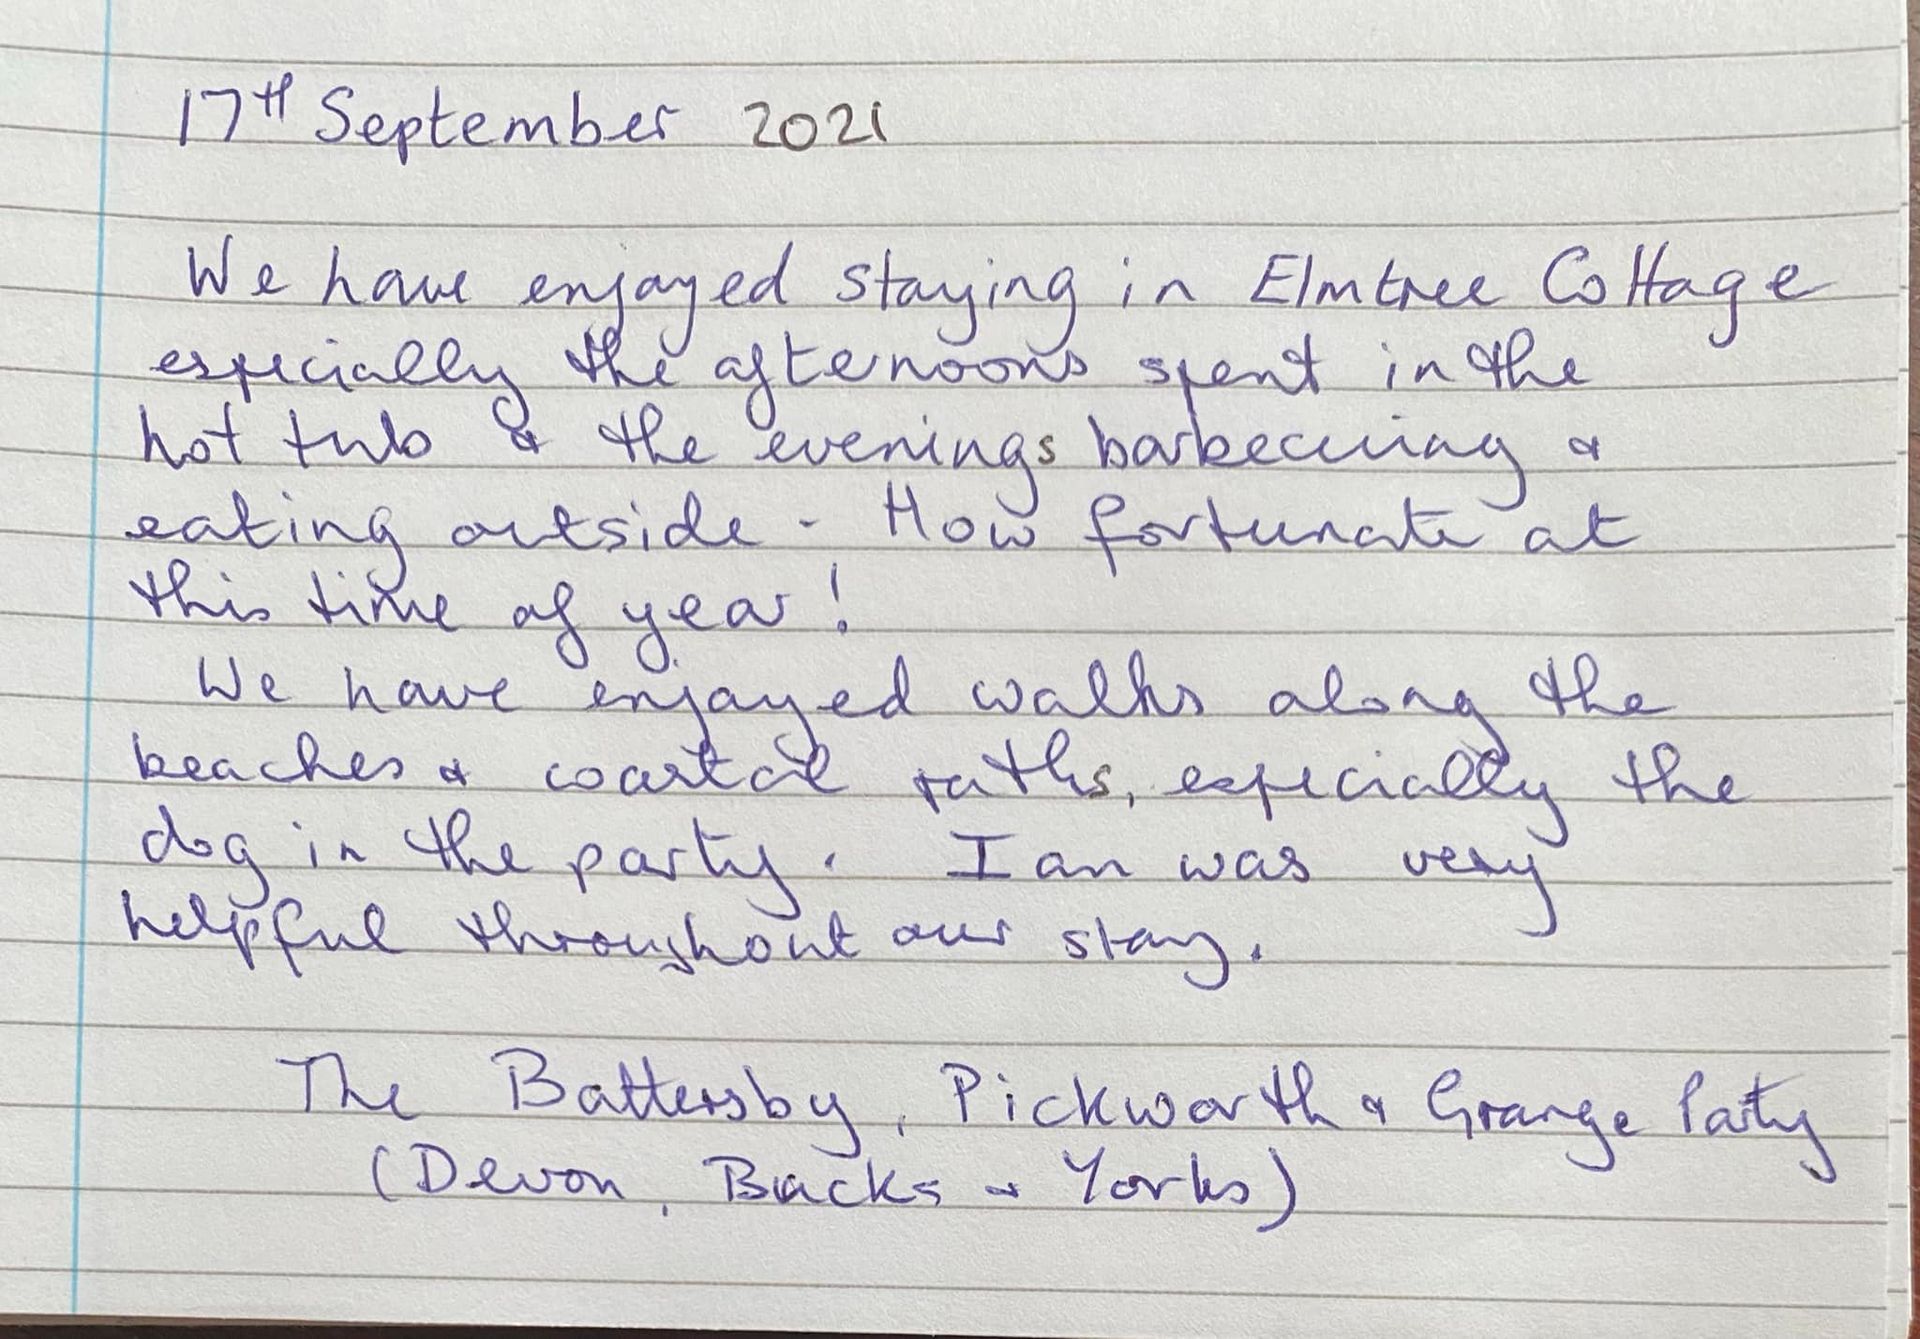 17th September 2021
We have enjoyed staying in Elmtree Cottage
especially the afternoons spent in the
hot tub & the evenings barbecuing &
eating outside - How fortunate at
this time of year!
We have enjoyed walks along the
beaches & coastal paths, especially the
dog in the party. Ian was very
helpful throughout our stay.
The Battersby, Pickworth & Grange Party
(Devon, Bucks & Yorks)